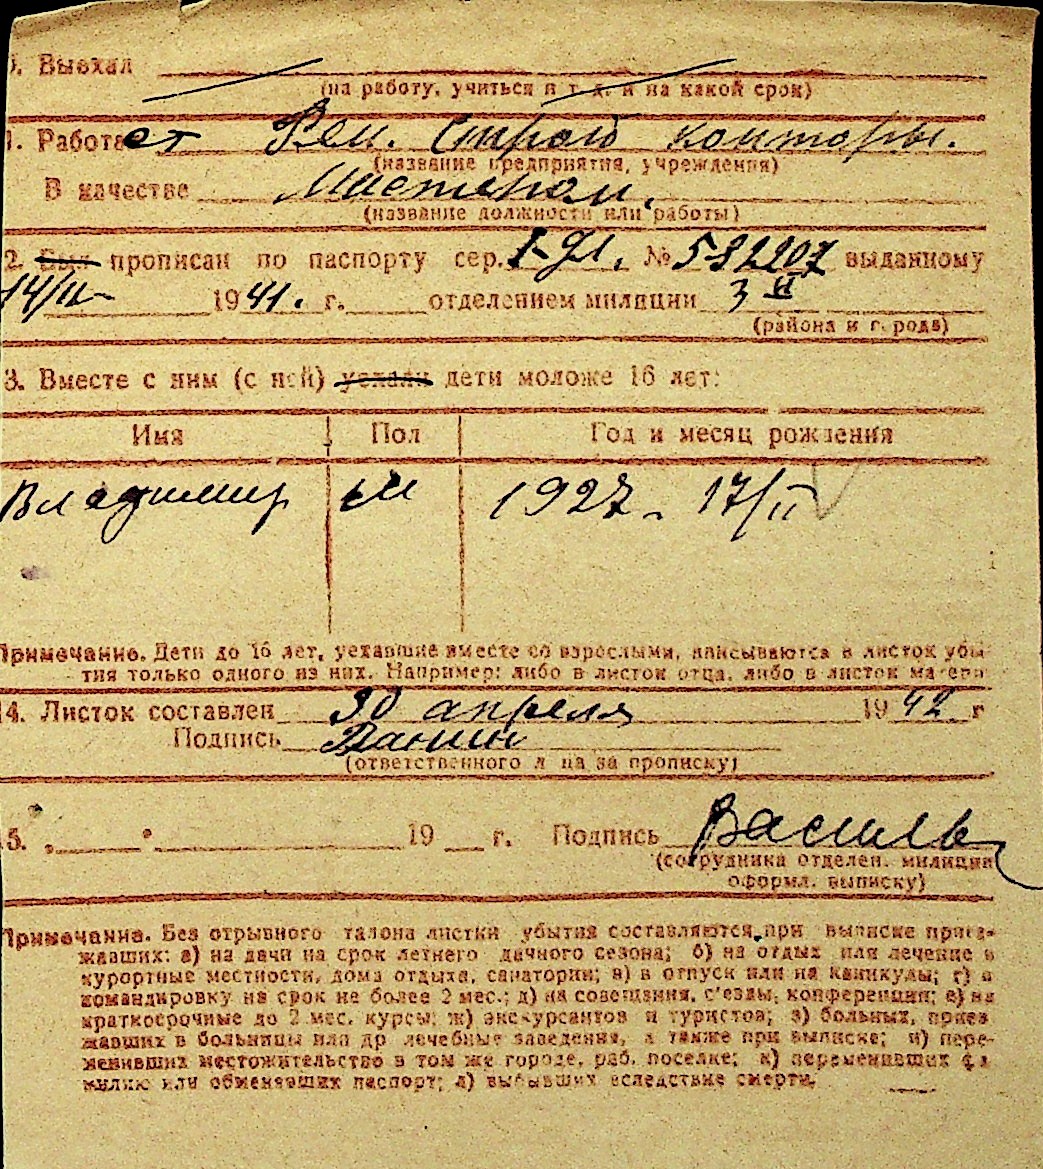 0. Выехал
(на работу, учиться и т. д. и на какой срок)
1. Работает Рем. Строй конторы.
(название предприятия, учреждения)
В качестве
(название должности или работы)
2. Был прописан по паспорту сер. № 582207 выданному
14/II- 1941. г. отделением милиции 3
(района и города)
3. Вместе с ним (с ней) уехали дети моложе 16 лет:
Имя Пол Год и месяц рождения
Владимир м 1927. 17/II
Примечание. Дети до 16 лет, уехавшие вместе со взрослыми, вписываются в листок убы-
тия только одного из них. Например: либо в листок отца, либо в листок матери
14. Листок составлен 30 апреля 1942 г
Подпись Панин
(ответственного лица за прописку)
5. „ " 19 г. Подпись Василь
(сотрудника отделен. милиции
оформл. выписку)
Примечание. Без отрывного талона листки убытия составляются при выписке приез-
жавших: а) на дачи на срок летнего дачного сезона; б) на отдых или лечение в
курортные местности, дома отдыха, санатории; в) в отпуск или на каникулы; г) в
командировку на срок не более 2 мес.; д) на совещания, с'езды, конференции; е) на
краткосрочные до 2 мес. курсы; ж) экскурсантов и туристов; з) больных, приез
жавших в больницы или др лечебные заведения, а также при выписке; и) пере-
менивших местожительство в том же городе, раб. поселке; к) переменивших фа
милию или обменявших паспорт; л) выбывших вследствие смерти.